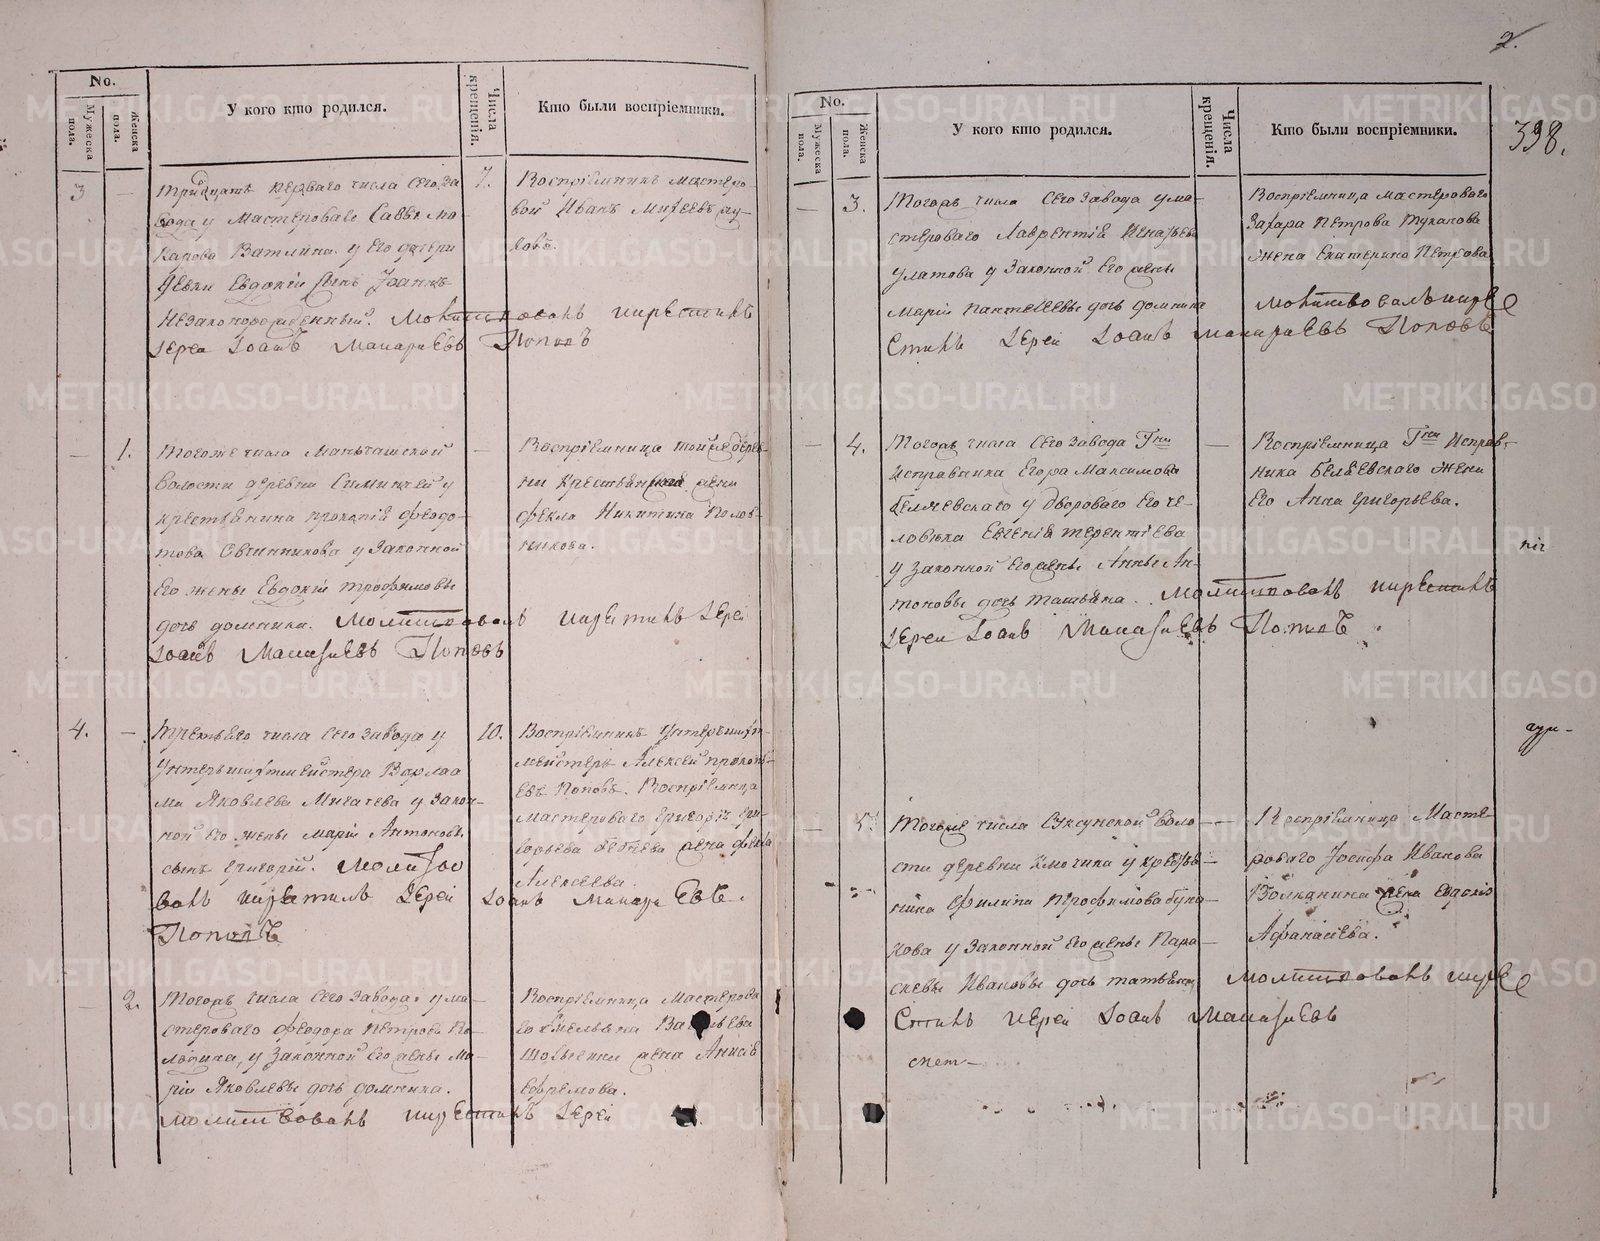 No.
Мужеска пола.
Женска пола.
У кого кто родился.
Числа крещенія.
Кто были воспріемники.
3
—
Тридцать перваго числа сего за
вода у Мастероваго Саввы Ма-
карова Ватлина у его дочери
девки Евдокіи сынъ Іоаннъ
незаконорожденный. Молитвовалъ и крестилъ
Іерей Іоаннъ Макаріевъ Поповъ
7.
Воспріемникъ мастеро-
вой Иванъ
—
1.
Тогоже числа
волости деревни
крестьянина Прокопія Федо-
това Овчинникова у законной
его жены Евдокіи Трофимовы
дочь Домника. Молитвовалъ и крестилъ Іерей
Іоаннъ Макаріевъ Поповъ
—
Воспріемница тойже дерев-
ни крестьянская жена
Фекла Никитина
4.
—
Третьяго числа сего завода у
Унтершихтмейстера Варлаа
ма Яковлева у закон-
ной его жены Маріи Антоновы
сынъ Григорій. Молитво
валъ и крестилъ Іерей Іоаннъ Макаріевъ.
Поповъ
10.
Воспріемникъ Унтершихт-
мейстеръ Алексей Прокопь-
евъ Поповъ. Воспріемница
мастероваго Григорія Гри-
горьева жена Фекла
Алексеева.
—
2.
Тогожъ числа сего завода у ма-
стероваго Федора Петрова
у законной его жены Ма-
ріи Яковлевы дочь Домника.
Молитвовалъ и крестилъ Іерей
Воспріемница Мастерова
го Емельяна
жена Анисія
Ефремова.
2.
398.
No.
Мужеска пола.
Женска пола.
У кого кто родился.
Числа крещенія.
Кто были воспріемники.
—
3.
Тогожъ числа сего завода у ма-
стероваго Лаврентія Игнатьева
у законной его жены
Маріи Пантелеевы дочь Домника
Воспріемница мастероваго
Захара Петрова
жена Екатерина Петрова
Молитвовалъ и кре
стилъ Іерей Іоаннъ Макаріевъ Поповъ
—
4.
Тогожъ числа сего завода Гна
Исправника Егора Максимова
Беляевскаго у двороваго его че-
ловека Евгенія Терентіева
у законной его жены Анны Ан-
тоновы дочь Татьяна. Молитвовалъ и крестилъ
Іерей Іоаннъ Макаріевъ Поповъ
—
Воспріемница Гна Исправ-
ника Беляевскаго жена
его Анна Григорьева.
—
5.
Тогоже числа Суксунской воло-
сти деревни у крестья-
нина Филипа Трофимова
у законной его жены Пара-
скевы Ивановы дочь Татьяна
—
Воспріемница Масте-
роваго Іосифа Иванова
жена Евдокія
Афанасіева.
Молитвовалъ и кре
стилъ Іерей Іоаннъ Макаріевъ
METRIKI.GASO-URAL.RU